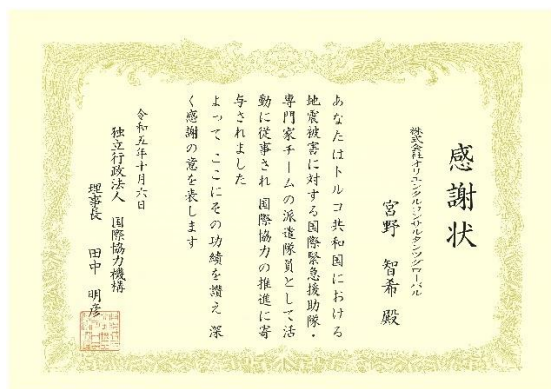 感謝状
株式会社オリエンタルコンサルタンツグローバル
宮野 智希 殿
あなたはトルコ共和国における
地震被害に対する国際緊急援助隊・
専門家チームの派遣隊員として活
動に従事され 国際協力の推進に寄
与されました
よって ここにその功績を讃え 深
く感謝の意を表します
令和五年十月六日
独立行政法人 国際協力機構
理事長 田中 明彦